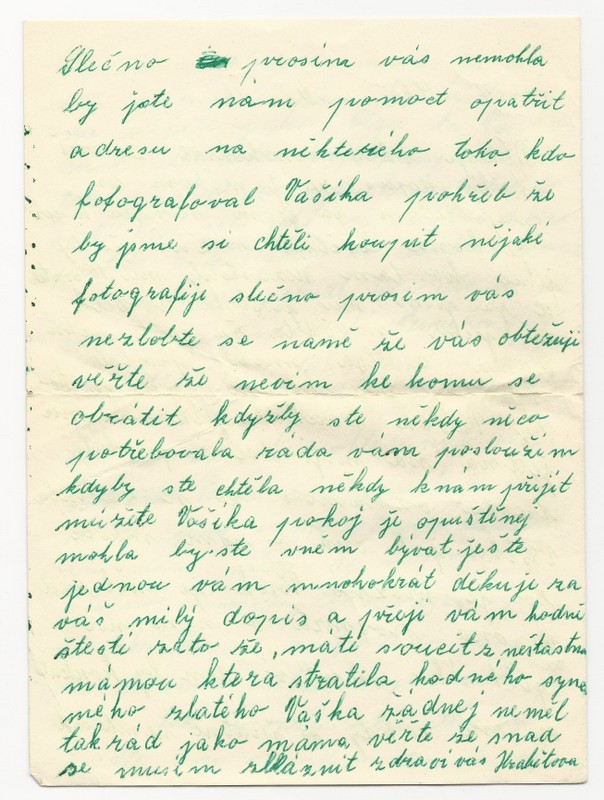 Slečno prosím vás nemohla
by jste nám pomoct opatřit
adresu na některého toho kdo
fotografoval Vašíka pohřeb že
by jsme si chtěli koupit nějaké
fotografiji slečno prosim vás
nezlobte se namě že vás obtežuji
věřte že nevim ke komu se
obrátit kdyžby ste někdy něco
potřebovala ráda vám posloužim
kdyby ste chtěla někdy knám přijít
můžite Vašíka pokoj je opuštěnej
mohla by ste vněm bývat ješte
jednou vám mnohokrát děkuji za
váš milý dopis a přeji vám hodně
štestí zato že máte soucit z neštastnou
mámou ktera stratila hodného syna
mého zlatého Vaška žádnej neměl
takrád jako máma věřte že snad
se musim zbláznit zdraví vás Hrabětova